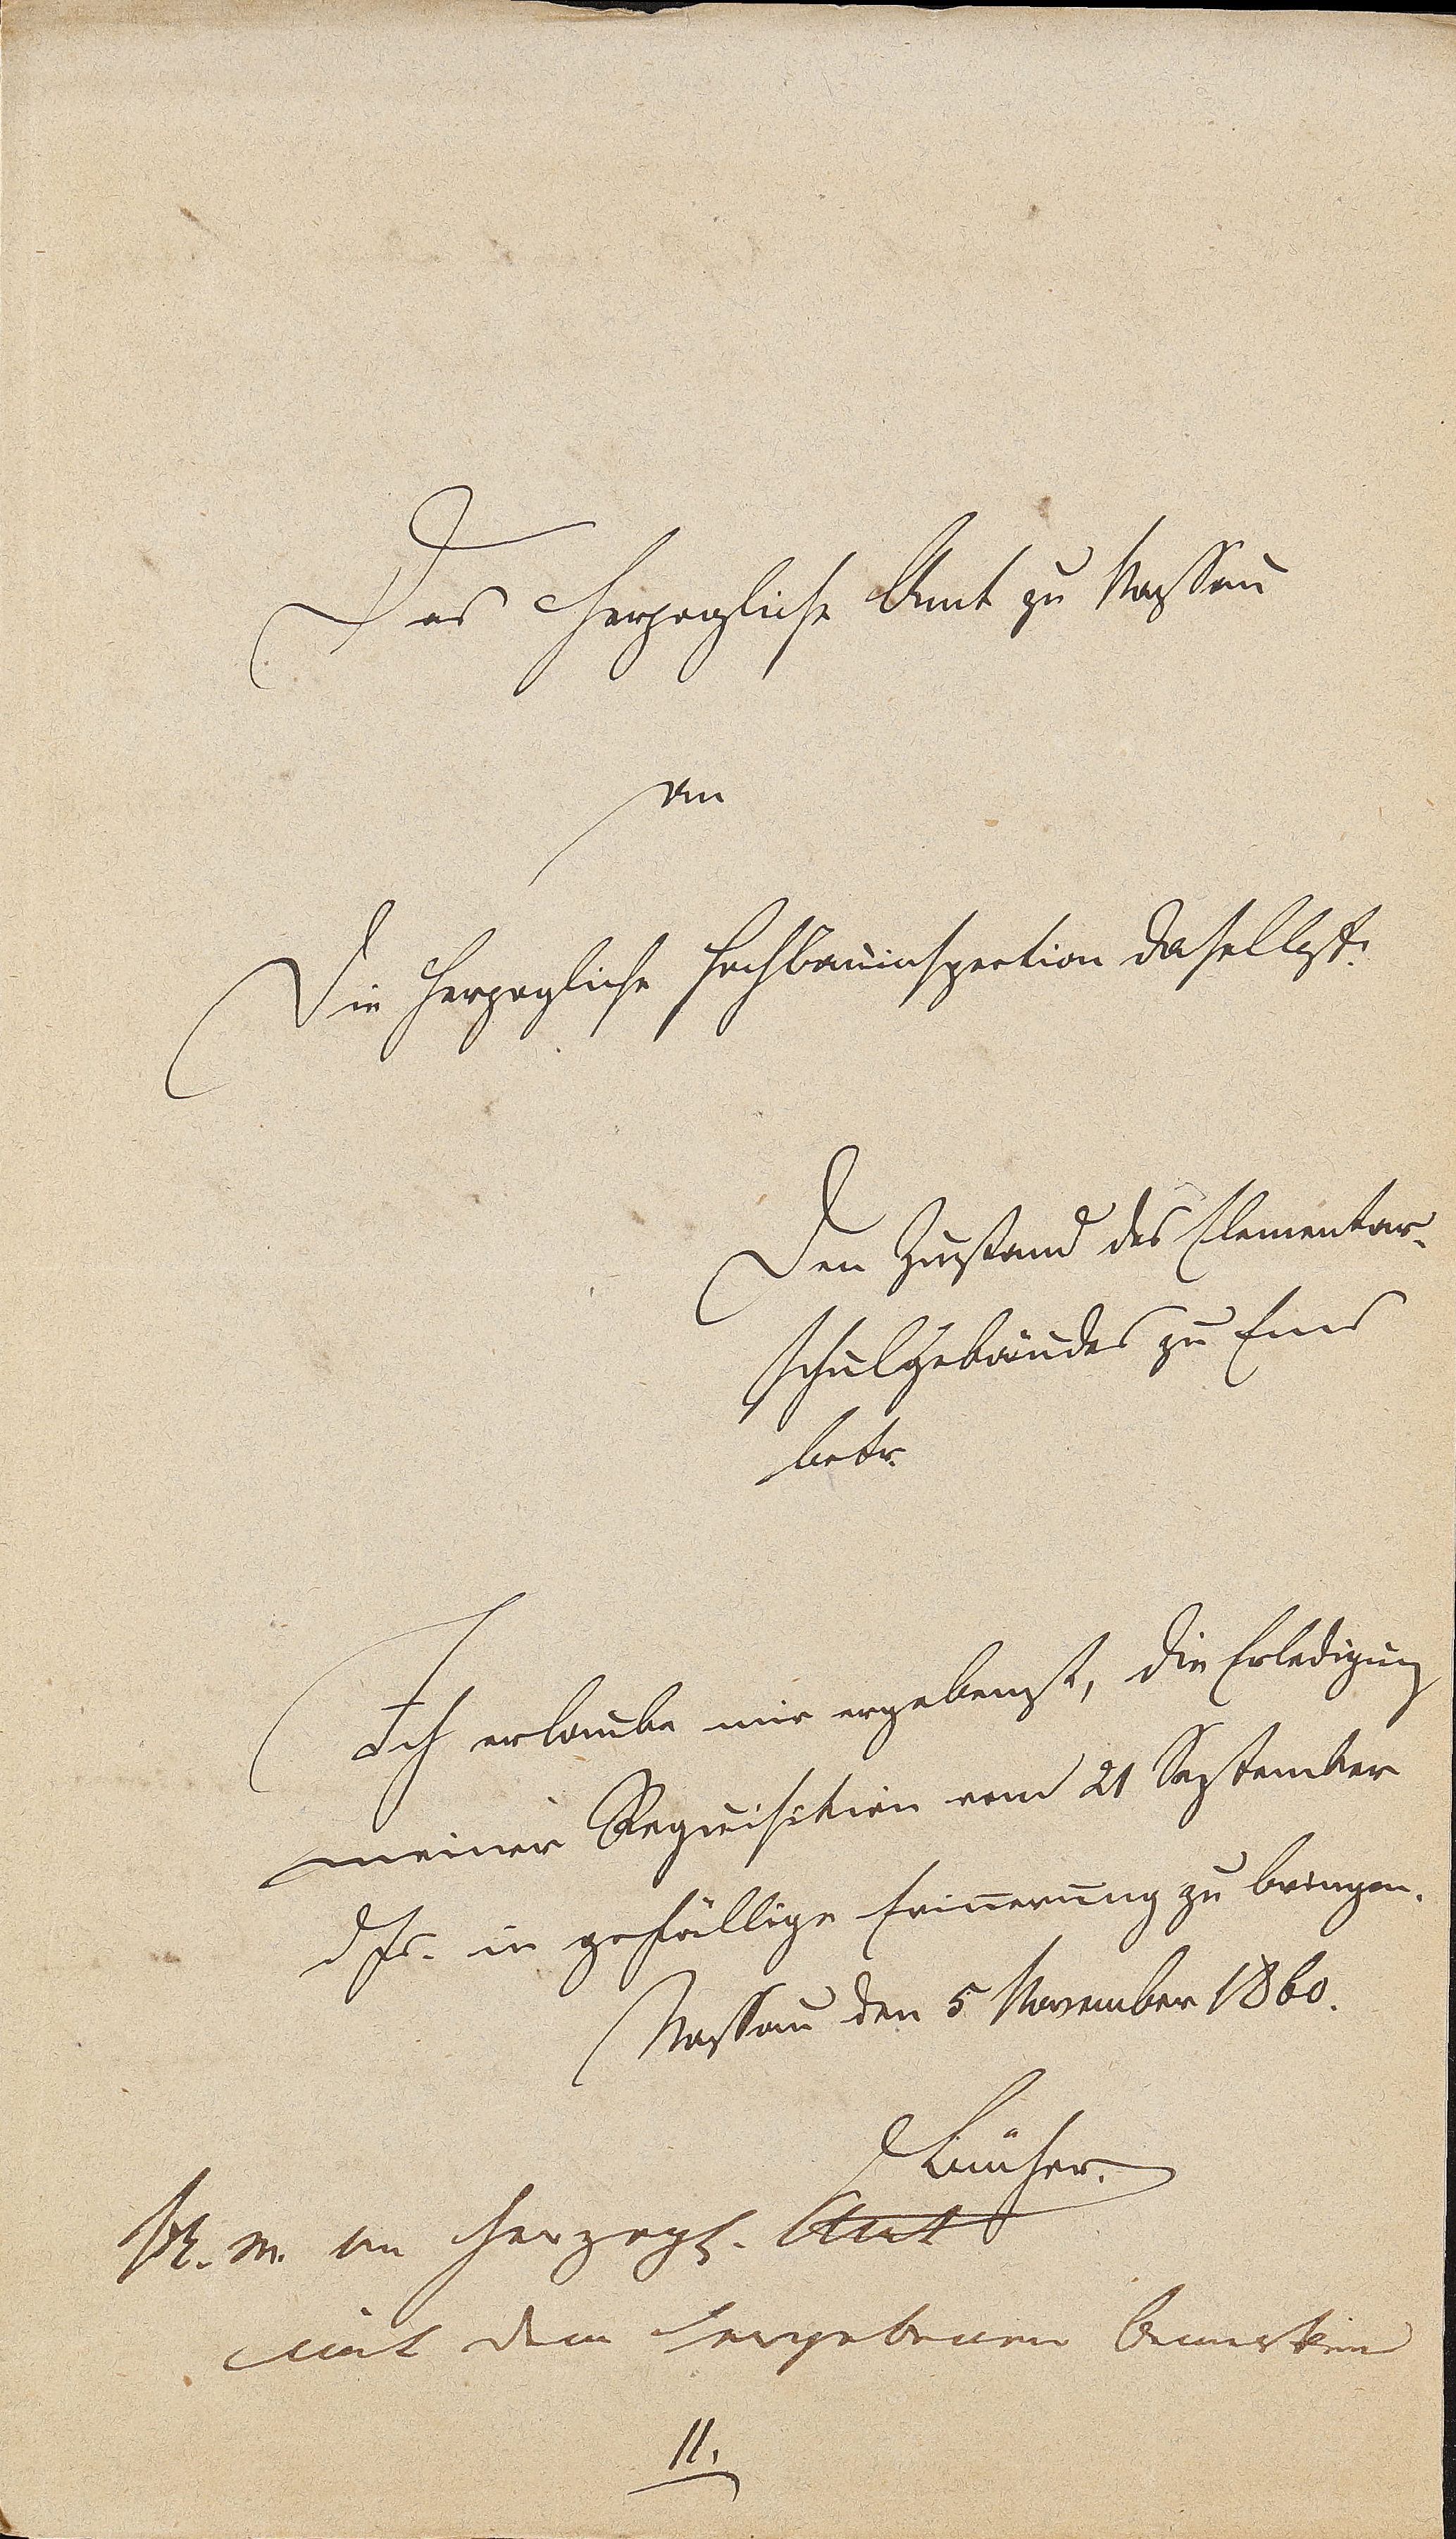 Das Herzogliche Amt zu Nassau
an
Die Herzogliche Hochbauinspection daselbst.
Den Zustand des Elementar-
schulgebäudes zu Ems
betr.
Ich erlaube mir ergebenst, die Erledigung
meiner Requisition vom 21 September
d Js. in gefällige Erinnerung zu bringen.
Nassau den 5 November 1860.
an Herzogl. Amt
mit dem ergebenen Bemerken
II.